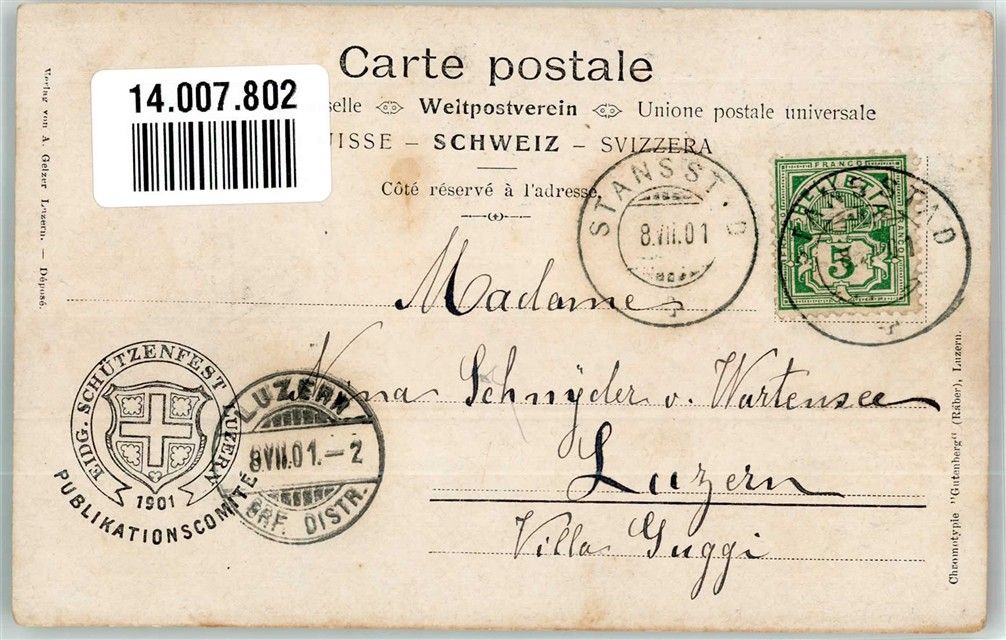 Carte postale
14.007.802
selle Weltpostverein Unione postale universale
UISSE – SCHWEIZ – SVIZZERA
Côté réservé à l'adresse.
Verlag von A. Gelzer Luzern. — Déposé
STANSSTAD
8.VII.01
FRANCO
HELVETIA
5
STANSSTAD
Madame
Nina Schnÿder v. Wartensee
Luzern
Villa Guggi
EIDG. SCHÜTZENFEST LUZERN
1901
PUBLIKATIONSCOMITE
LUZERN
8VII.01.–2
BRF. DISTR.
Chromotypie "Gutenberg" (Räber), Luzern.